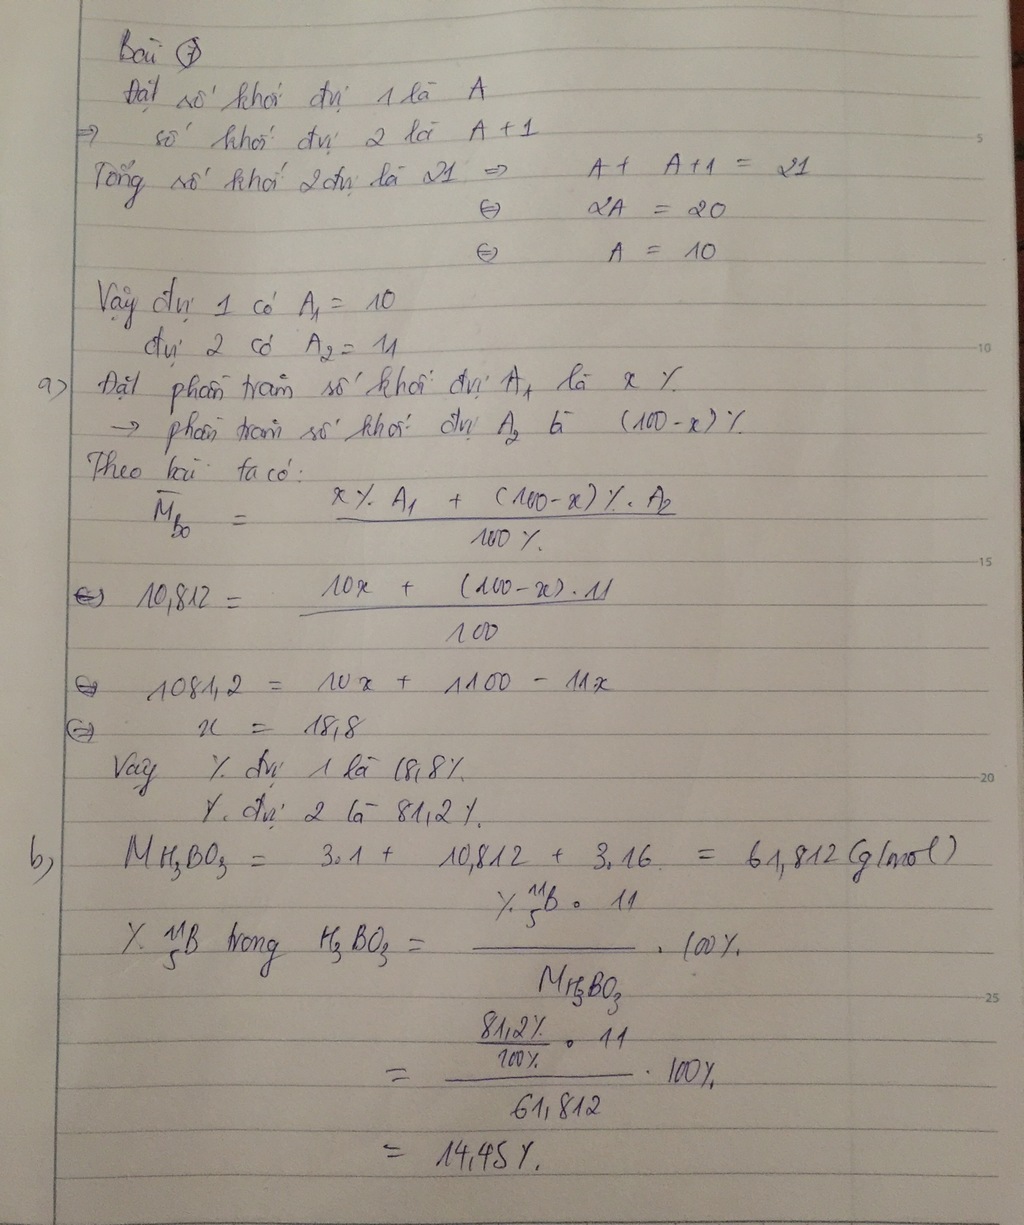 Bài 7
Đặt số khối đvị 1 là A
=> số khối đvị 2 là A + 1
Tổng số khối 2 đvị là 21 => A + A+1 = 21
<=> 2A = 20
<=> A = 10
Vậy đvị 1 có A₁ = 10
đvị 2 có A₂ = 11
a) Đặt phần trăm số khối đvị A₁ là x %
-> phần trăm số khối đvị A₂ là (100 - x) %
Theo bài ta có:
M̅Bo = (x%. A₁ + (100-x)%. A₂) / 100%.
<=> 10,812 = (10x + (100-x). 11) / 100
<=> 1081,2 = 10x + 1100 - 11x
<=> x = 18,8
Vậy % đvị 1 là 18,8%.
%. đvị 2 là 81,2%.
b) MH₃BO₃ = 3.1 + 10,812 + 3.16 = 61,812 (g/mol)
% ¹¹₅B trong H₃BO₃ = (%. ¹¹₅B . 11) / MH₃BO₃ . 100%.
= (81,2%/100% . 11) / 61,812 . 100%
= 14,45%.
5
10
15
20
25